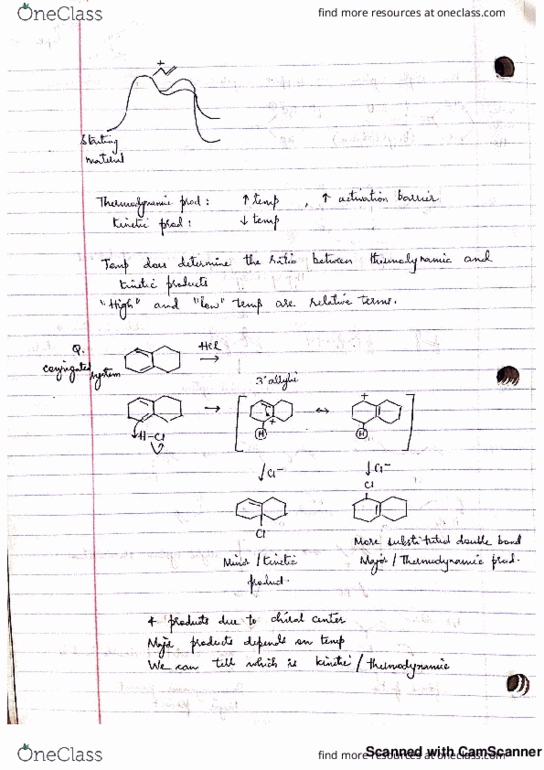 OneClass
find more resources at oneclass.com
+
Starting
material
Thermodynamic prod : ↑ temp , ↑ activation barrier
Kinetic prod : ↓ temp
Temp does determine the ratio between thermodynamic and
kinetic products
"High" and "low" temp are relative terms.
Q.
conjugated system
HCl
→
3° allylic
H-Cl
→
+
H
↔
+
H
↓ Cl⁻
↓ Cl⁻
Cl
Cl
More substituted double bond
Minor / kinetic
Major / Thermodynamic prod.
product.
4 products due to chiral center
Major products depends on temp
We can tell which is kinetic / thermodynamic
OneClass
find more resources at oneclass.com
Scanned with CamScanner